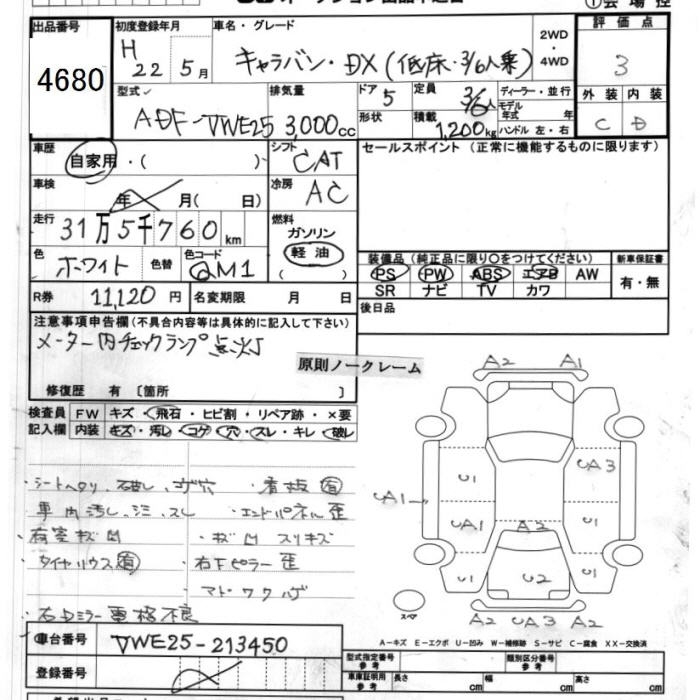 出品番号 初度登録年月 車名・グレード 2WD・4WD 評価点
4680 H 22 5月 キャラバン・DX (低床・3/6人乗) 3
型式 排気量 ドア 5 定員 3/6人 ディーラー・並行 外装 内装
ADF-VWE25 3,000cc 形状 積載 1,200kg モデル年式 年 ハンドル 左・右 C D
車歴 自家用・( ) シフト CAT セールスポイント (正常に機能するものに限ります)
車検 年 月( 日) 冷房 AC
走行 31万5千760km 燃料 ガソリン 軽油
色 ホワイト 色替 色コード QM1 装備品 (純正品に限り○をつけてください) 新車保証書
PS PW ABS エアB AW 有・無
SR ナビ TV カワ
R券 11,120円 名変期限 月 日 後日品
注意事項申告欄(不具合内容等は具体的に記入して下さい)
メーター内チェックランプ点灯
原則ノークレーム
修復歴 有 〔箇所 〕
検査員 FW キズ・飛石・ヒビ割・リペア跡・×要
記入欄 内装 キズ・汚レ・コゲ・穴・スレ・キレ・破レ
・シートヘタリ、破レ、コゲ穴 ・看板有
・車内汚し、シミ、スレ ・エンドパネル歪
荷室キズ凹 ・キズ凹スリキズ
・タイヤハウス有 ・右下ピラー歪
・マドワクハゲ
・右ミラー電格不良
A2 A1
U1 UA3
UA1 UA1 A2
U1 U2 U1
スペア A2 UA3 A2
A-キズ E-エクボ U-凹み W-補修跡 S-サビ C-腐食 XX-交換済
車台番号 VWE25-213450
登録番号
型式指定番号 参考 類別区分番号 参考
車庫証明用 参考 長さ cm 幅 cm 高さ cm